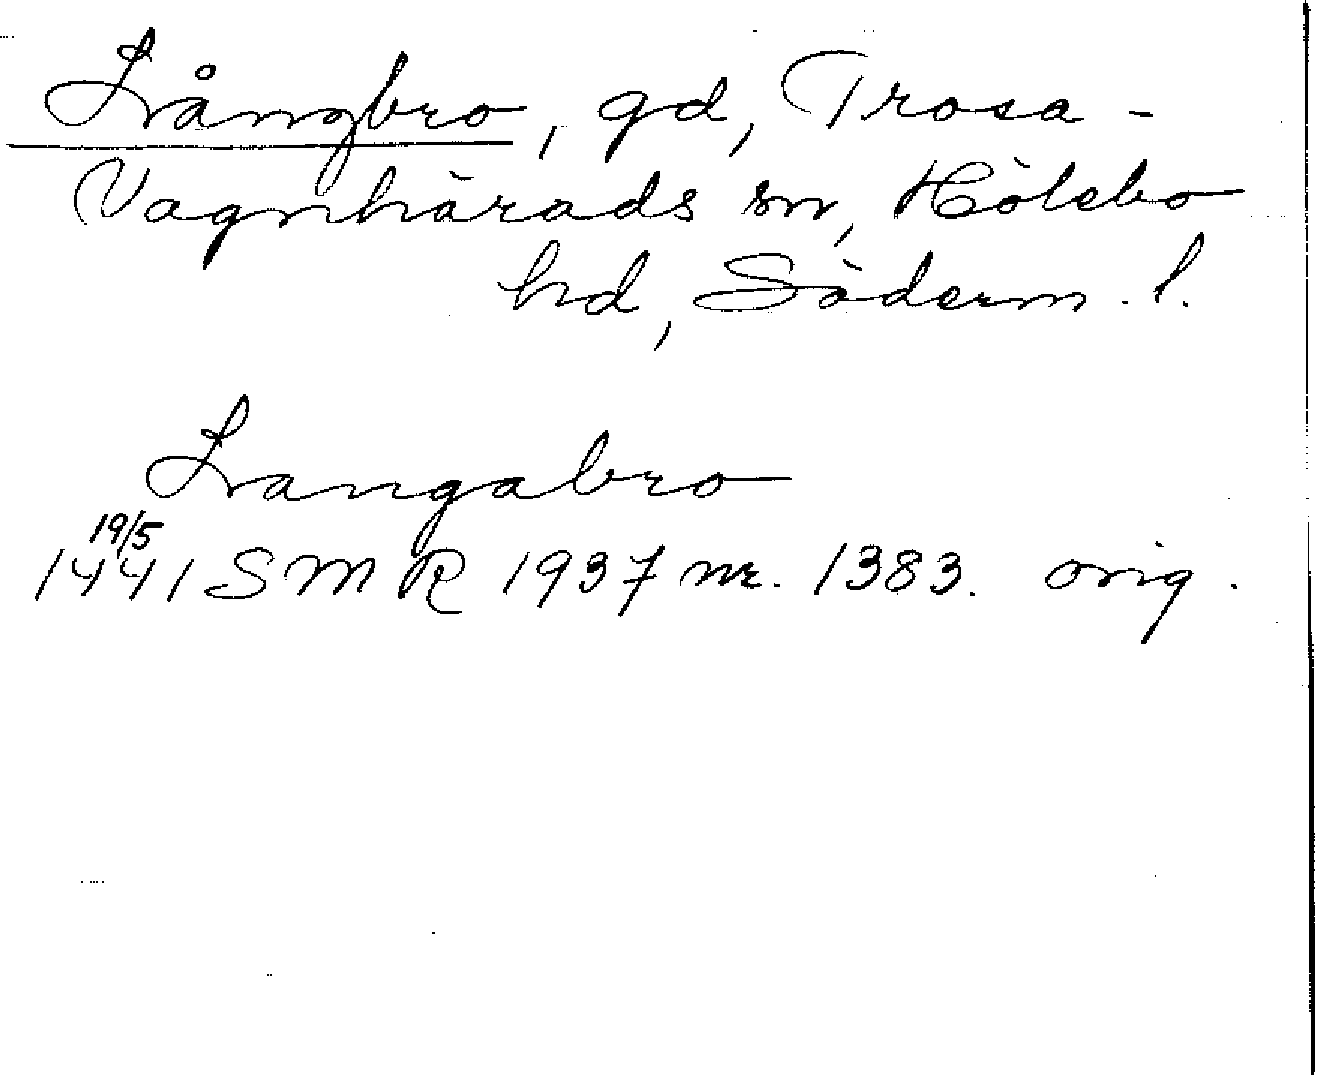 Långbro, gd, Trosa-
Vagnhärads sn, Hölebo
hd, Söderm. l.
Langabro
19/5
1441 SMR 1937 nr. 1383. orig.